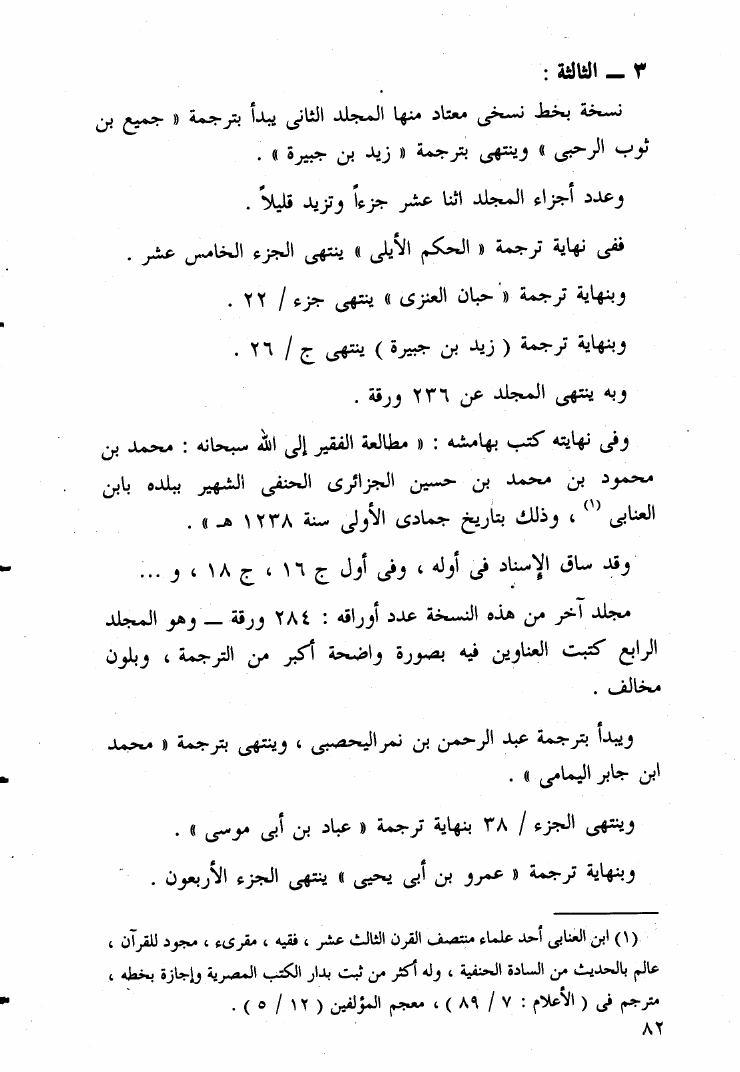 ٣ ــ الثالثة :
نسخة بخط نسخى معتاد منها المجلد الثانى يبدأ بترجمة « جميع بن
ثوب الرحبى » وينتهى بترجمة « زيد بن جبيرة » .
وعدد أجزاء المجلد اثنا عشر جزءاً وتزيد قليلاً .
ففى نهاية ترجمة « الحكم الأيلى » ينتهى الجزء الخامس عشر .
وبنهاية ترجمة « حبان العنزى » ينتهى جزء / ٢٢ .
وبنهاية ترجمة ( زيد بن جبيرة ) ينتهى ج / ٢٦ .
وبه ينتهى المجلد عن ٢٣٦ ورقة .
وفى نهايته كتب بهامشه : « مطالعة الفقير إلى الله سبحانه : محمد بن
محمود بن محمد بن حسين الجزائرى الحنفى الشهير ببلده بابن
العنابى (١) ، وذلك بتاريخ جمادى الأولى سنة ١٢٣٨ هـ » .
وقد ساق الإسناد فى أوله ، وفى أول ج ١٦ ، ج ١٨ ، و ...
مجلد آخر من هذه النسخة عدد أوراقه : ٢٨٤ ورقة ــ وهو المجلد
الرابع كتبت العناوين فيه بصورة واضحة أكبر من الترجمة ، وبلون
مخالف .
ويبدأ بترجمة عبد الرحمن بن نمر اليحصبى ، وينتهى بترجمة « محمد
ابن جابر اليمامى » .
وينتهى الجزء / ٣٨ بنهاية ترجمة « عباد بن أبى موسى » .
وبنهاية ترجمة « عمرو بن أبى يحيى » ينتهى الجزء الأربعون .
(١) ابن العنابى أحد علماء منتصف القرن الثالث عشر ، فقيه ، مقرىء ، مجود للقرآن ،
عالم بالحديث من السادة الحنفية ، وله أكثر من ثبت بدار الكتب المصرية وإجازة بخطه ،
مترجم فى ( الأعلام : ٧ / ٨٩ ) ، معجم المؤلفين ( ١٢ / ٥ ) .
٨٢